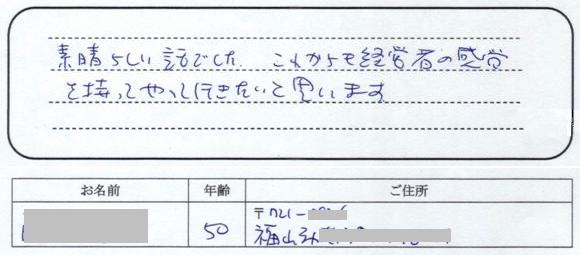 素晴らしい話でした. これからも経営者の感覚
を持ってやって行きたいと思います
お名前 年齢 ご住所
50 〒721-
福山市